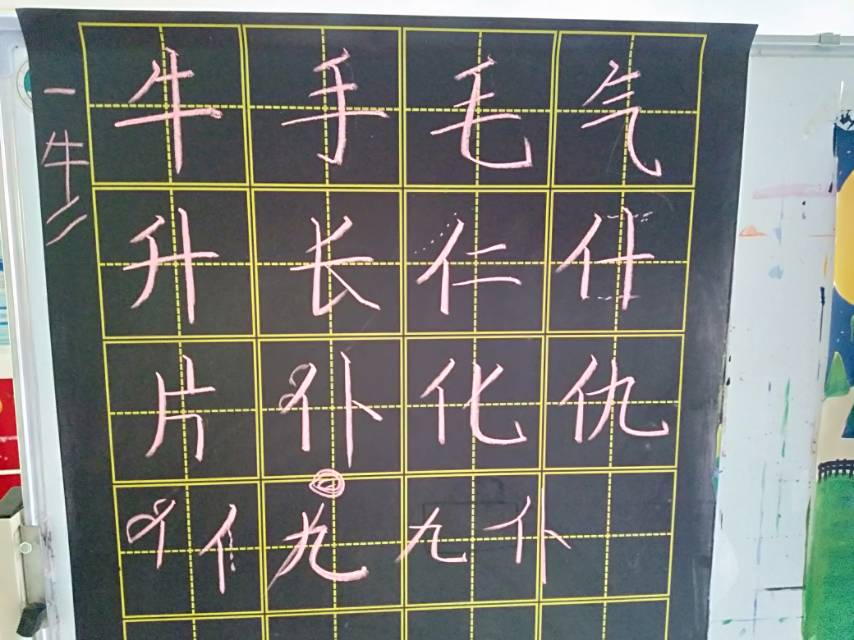 牛 手 毛 气
升 长 仁 什
片 仆 化 仇
亻 亻 九 九 仆
一
牛